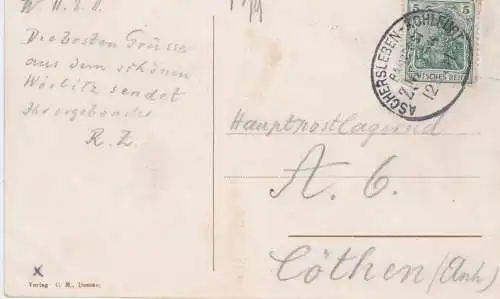 W. H. S. V.
Die besten Grüsse
aus dem schönen
Wörlitz sendet
Ihr ergebenster
R. Z.
ASCHERSLEBEN-KOHLFURT
BAHNPOST
5 5
DEUTSCHES REICH
12
Hauptpostlagernd
A. 6.
Cöthen (Anh)
x
Verlag O. M., Dessau.